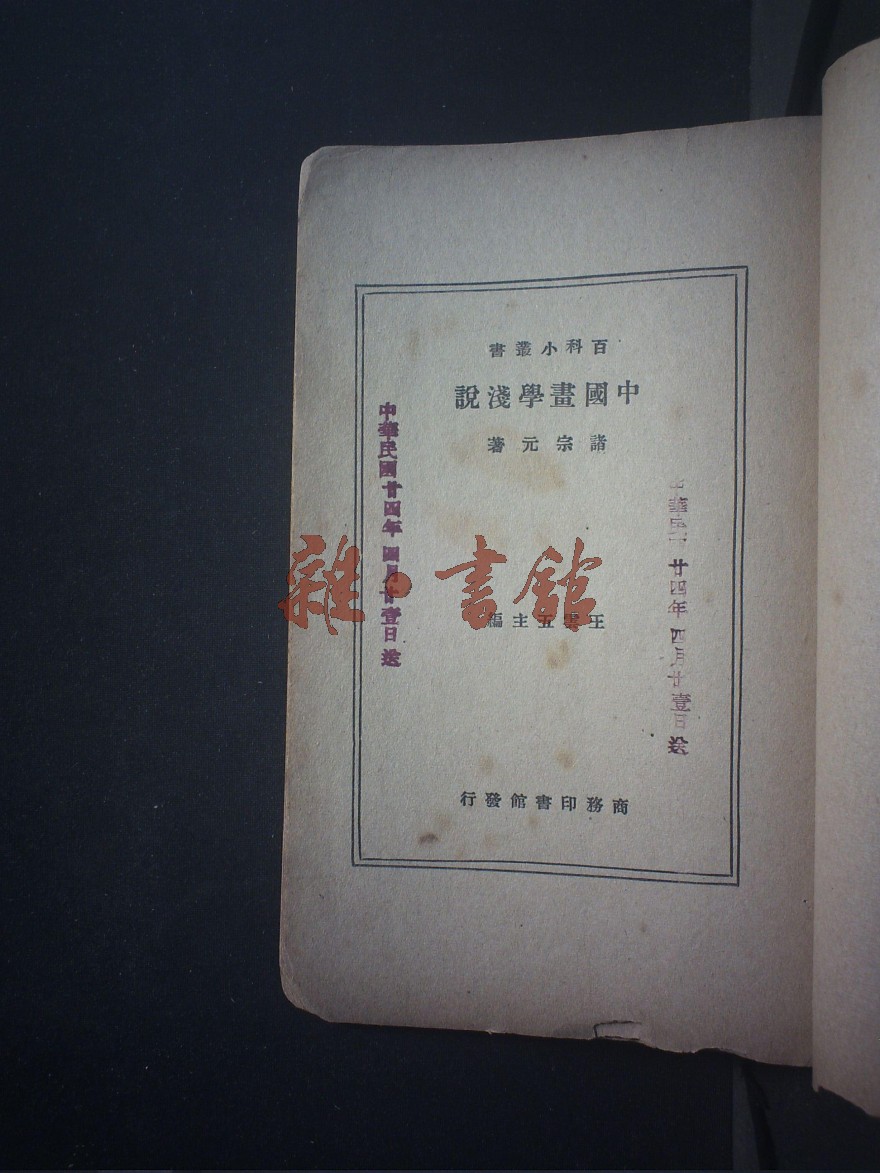 百科小叢書
中國畫學淺說
諸宗元著
王雲五主編
商務印書館發行
中華民國廿四年四月廿壹日送
華民 廿四年四月廿壹日送
雜·書館